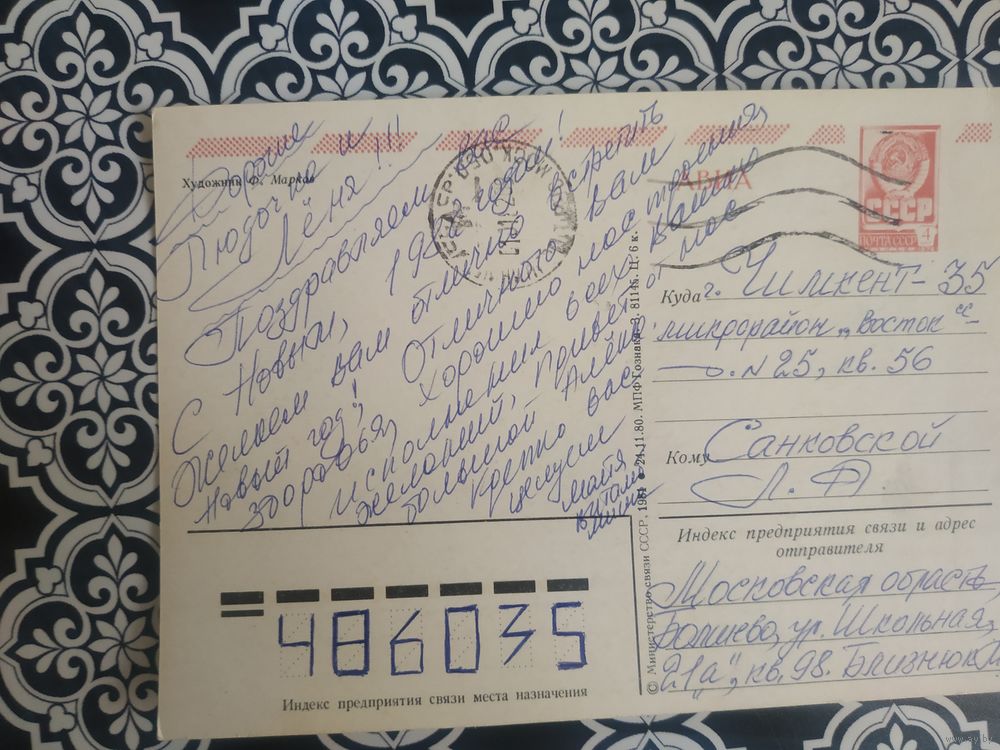 Художник Ф. Марков
АВИА
СССР
ПОЧТА СССР
4
Дорогие
Людочка и
Лёня!!!
Поздравляем вас
С Новым, 1982 годом!
Желаем вам отлично встретить
Новый год! Отличного вам
здоровья, хорошего настроения,
исполнения всех ваших
желаний, привет от нас
большой Алёне.
Крепко вас
целуем
майя
Виталий
Куда г. Чимкент-35
микрорайон „Восток“-
д. N 25, кв. 56
Кому Санковской
Л. Д
Индекс предприятия связи и адрес
отправителя
Московская область,
Болшево, ул. Школьная,
21„а“, кв. 98. Близнюк М
486035
Индекс предприятия связи места назначения
© Министерство связи СССР, 1981 24.11.80. МПФ Гознака. З. 81145. Ц. 6 к.
www.ay.by